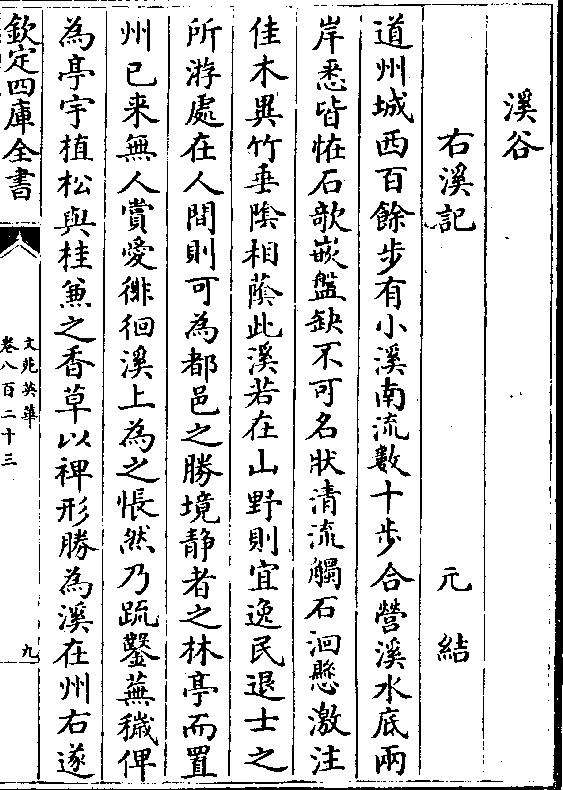 溪谷
右溪記 元結
道州城西百餘步有小溪南流數十步合營溪水底兩
岸悉皆怪石欹嵌盤缺不可名狀清流觸石洄懸激注
佳木異竹垂陰相蔭此溪若在山野則宜逸民退士之
所游處在人間則可為都邑之勝境静者之林亭而置
州已来無人賞愛徘徊溪上為之悵然乃疏鑿蕪穢俾
為亭宇植松與桂兼之香草以裨形勝為溪在州右遂
欽定四庫全書
文苑英華
卷八百二十三
九